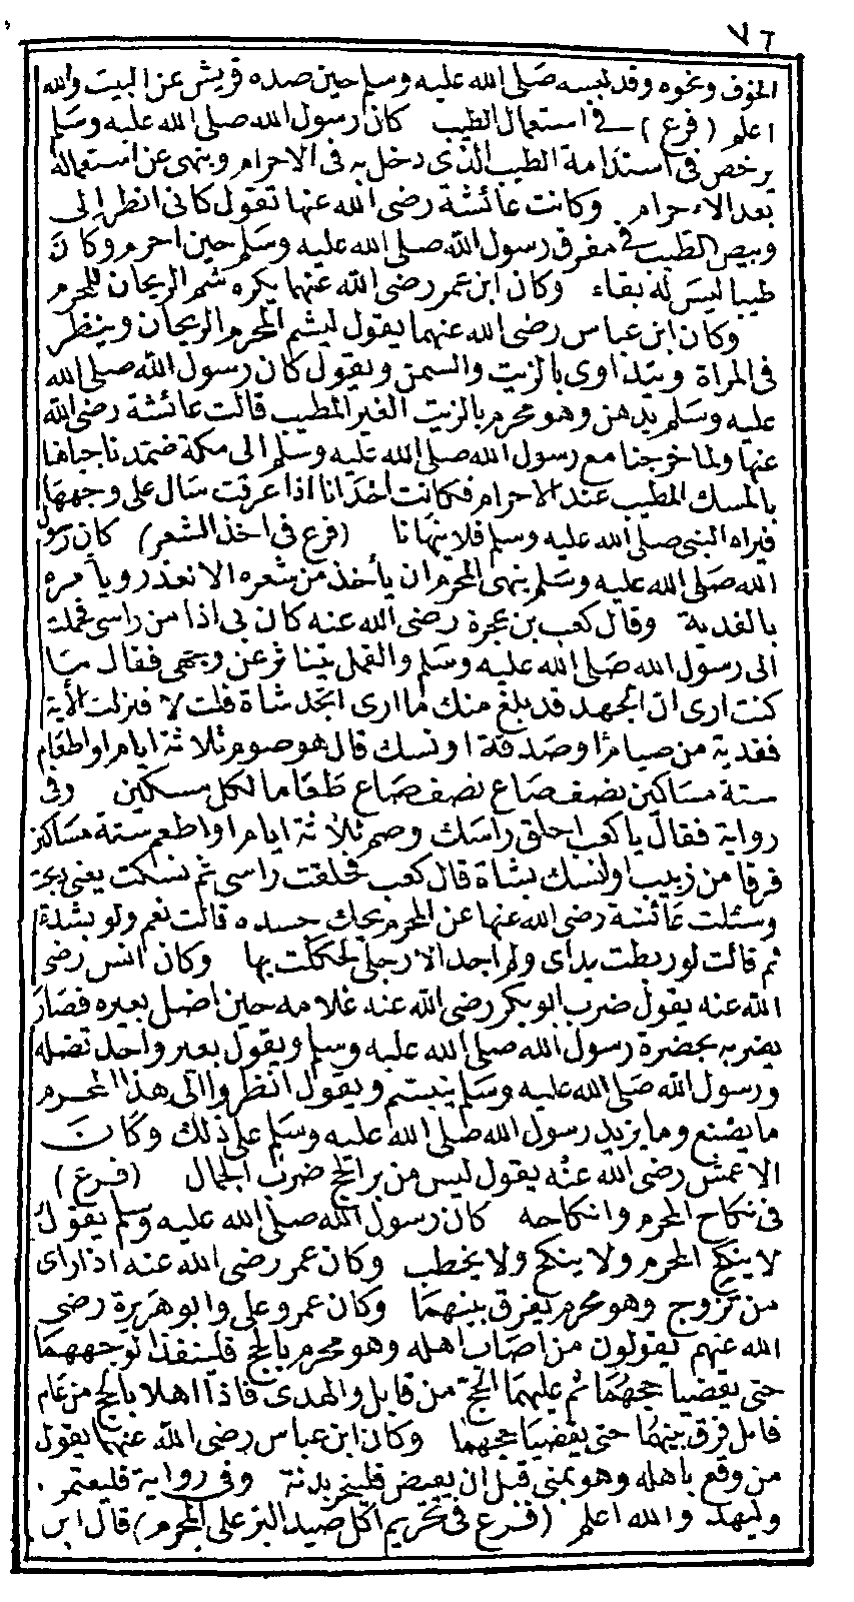 ٧٦
الخوف ونحوه وقد لبسه صَلى الله عليه وسلم حين صده قريش عن البيت والله
اعلم (فرع) في استعمال الطيب كان رسول الله صلى الله عليه وسَلم
يرخص فى استدامة الطيب الذى دخل به فى الاحرام وينهى عن استعماله
بعد الاحرام وكانت عائشة رضى الله عنها تقول كانى انظر إلى
وبيص الطيب في مفرق رسول الله صلى الله عليه وسَلم حين احرم وكانَ
طيبا ليسَ له بقاء وكان ابن عمر رضى الله عنهما يكره شم الريحان للمحرم
وكان ابن عباس رضى الله عنهما يقول ليشم المحرم الريحان وينظر
فى المراة ويتداوى بالزيت والسمن ويقول كان رسول الله صلى الله
عليه وسَلم يدهن وهو محرم بالزيت الغير المطيب قالت عائشة رضى الله
عنها ولما خرجنا مع رسول الله صلى الله عليه وسلم الى مكة ضمدنا جباهنا
بالمسك المطيب عند الاحرام فكانت احدَانا اذا عرقت سَال على وجهها
فيراه النبى صلى الله عليه وسلم فلا ينهانا (فرع فى اخذ الشعر) كان رسول
الله صَلى الله عليه وسَلم ينهى المحرم ان يأخذ من شعره الا لعذر ويأمره
بالفدية وقال كعب بن عجرة رضى الله عنه كان بى اذا من راسى فحملت
الى رسول الله صَلى الله عليه وسَلم والقمل يتناثر عن وجهى فقال مَا
كنت ارى ان الجهد قد بلغ منك ما ارى اتجد شاة قلت لا فنزلت الأية
ففدية من صيام أو صدقة او نسك قال هو صوم ثلاثة ايام او اطعام
ستة مسَاكين نصف صَاع نصف صَاع طعَاما لكل مسكين وفى
رواية فقال يا كعب احلق راسَك وصم ثلاثة ايام او اطعم ستة مسَاكين
فرقا من زبيب او انسك بشاة قال كعب فحلقت راسى ثم نسكت يعنى ذبحت
وسئلت عَائشة رضى الله عنها عن المحرم يحك جسده قالت نعم ولو بشدة
ثم قالت لو ربطت يداى ولم اجد الا رجلى لحككت بها وكان انس رضى
الله عنه يقول ضرب ابو بكر رضى الله عنه غلامه حين اضل بعيره فصَارَ
يضربه بحضرة رسول الله صلى الله عليه وسلم ويقول بعير واحد تضله
ورسول الله صَلى الله عليه وسَلم يبتسم ويقول انظروا الى هذا المحرم
ما يصْنع وما يزيد رسول الله صَلى الله عليه وسَلم على ذلك وكَانَ
الاعمش رضى الله عنْه يقول ليس من بر الحج ضربُ الجمال (فرع)
فى نكاح المحرم وانكاحه كان رسول الله صلى الله عليه وسلم يقول
لا ينكح المحرم ولا ينكح ولا يخطب وكان عمر رضى الله عنه اذا راى
من تزوج وهو محرم يفرق بينهمَا وكان عمر وعلى وابو هريرة رضى
الله عنهم يقولون من اصَاب اهله وهو محرم بالحج فلينفذا لوجههمَا
حتى يقضيا حجهُمَا ثم عليهمَا الحج من قابل والهدى فاذا اهلا بالحج من عَام
قابل فرق بينهُما حتى يقضيَا حجهما وكان ابن عباس رضى الله عنهما يقول
من وقع باهله وهو بمنى قبل ان يفيض فلينحر بدنة وفى رواية فليعتمر
وليهد والله اعلم (فرع فى تحريم اكل صَيد البر على المحرم) قال ابن